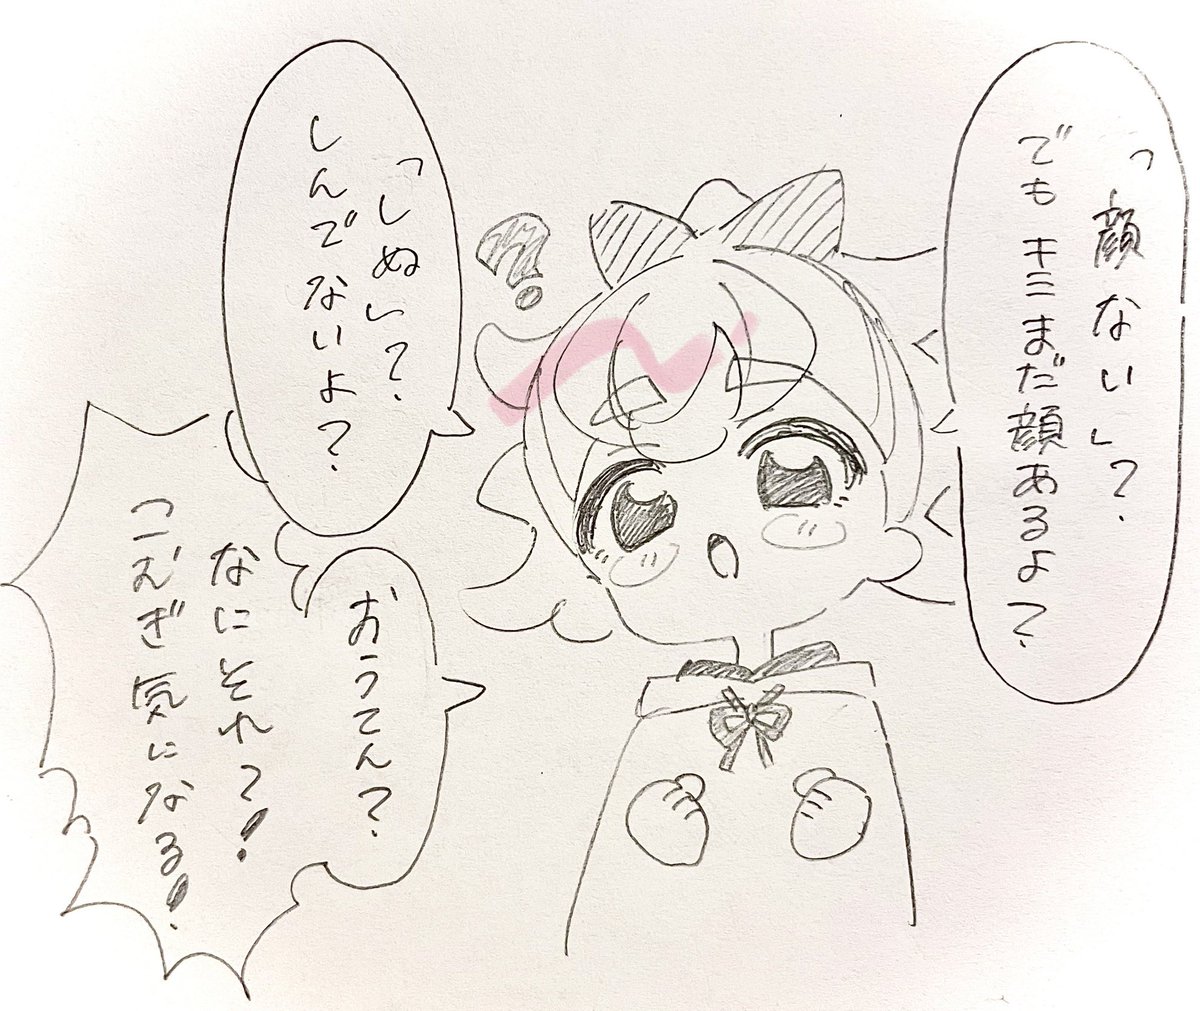 「顔ない」?
でもキミまだ顔あるよ?
「しぬい?
しんでないよ?
おうてん?
なにそれ?!
こむぎ気になる!
?